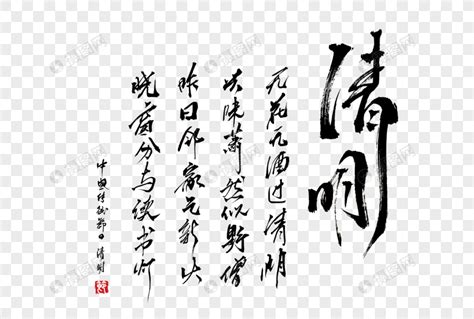 清明
无花无酒过清明
兴味萧然似野僧
昨日邻家乞新火
晓窗分与读书灯
中国传统节日清明